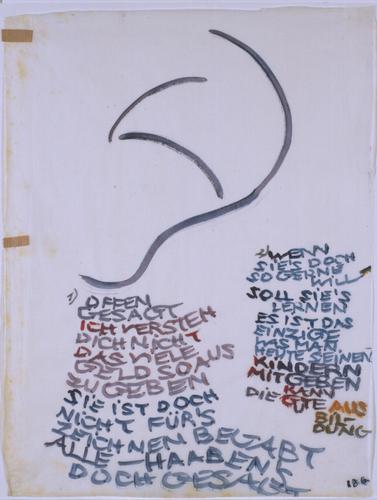 1) OFFEN
GESAGT
ICH VERSTEH
DICH NICHT
DAS VIELE
GELD SO AUS
ZU GEBEN
SIE IST DOCH
NICHT FÜR'S
ZEICHNEN BEGABT
ALLE - HAABEN'S
DOCH GESAGT
2) WENN
SIE'S DOCH
SO GERNE
WILL
SOLL SIE'S
LERNEN
ES IST DAS
EINZIGE
WAS MAN
HEUTE SEINEN
KINDERN
MITGEBEN
KANN
DIE GUTE AUS
BIL-
DUNG